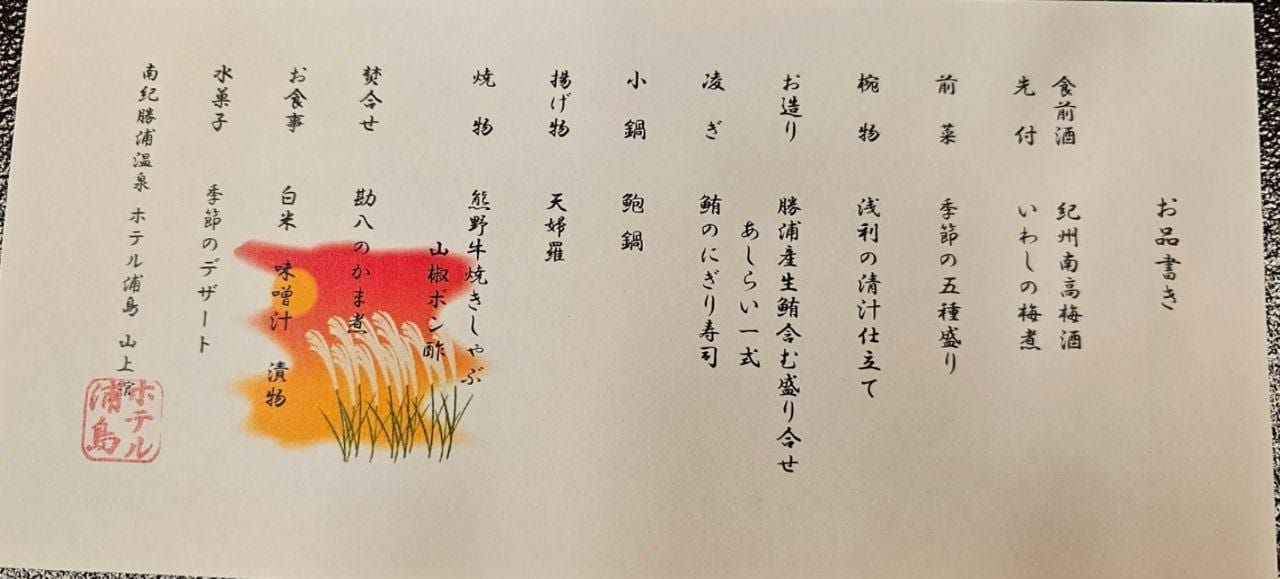 お品書き
食前酒 紀州南高梅酒
先付 いわしの梅煮
前菜 季節の五種盛り
椀物 浅利の清汁仕立て
お造り 勝浦産生鮪含む盛り合せ
あしらい一式
凌ぎ 鮪のにぎり寿司
小鍋 鮑鍋
揚げ物 天婦羅
焼物 熊野牛焼きしゃぶ
山椒ポン酢
焚合せ 勘八のかま煮
お食事 白米 味噌汁 漬物
水菓子 季節のデザート
南紀勝浦温泉 ホテル浦島 山上館
ホテル
浦島